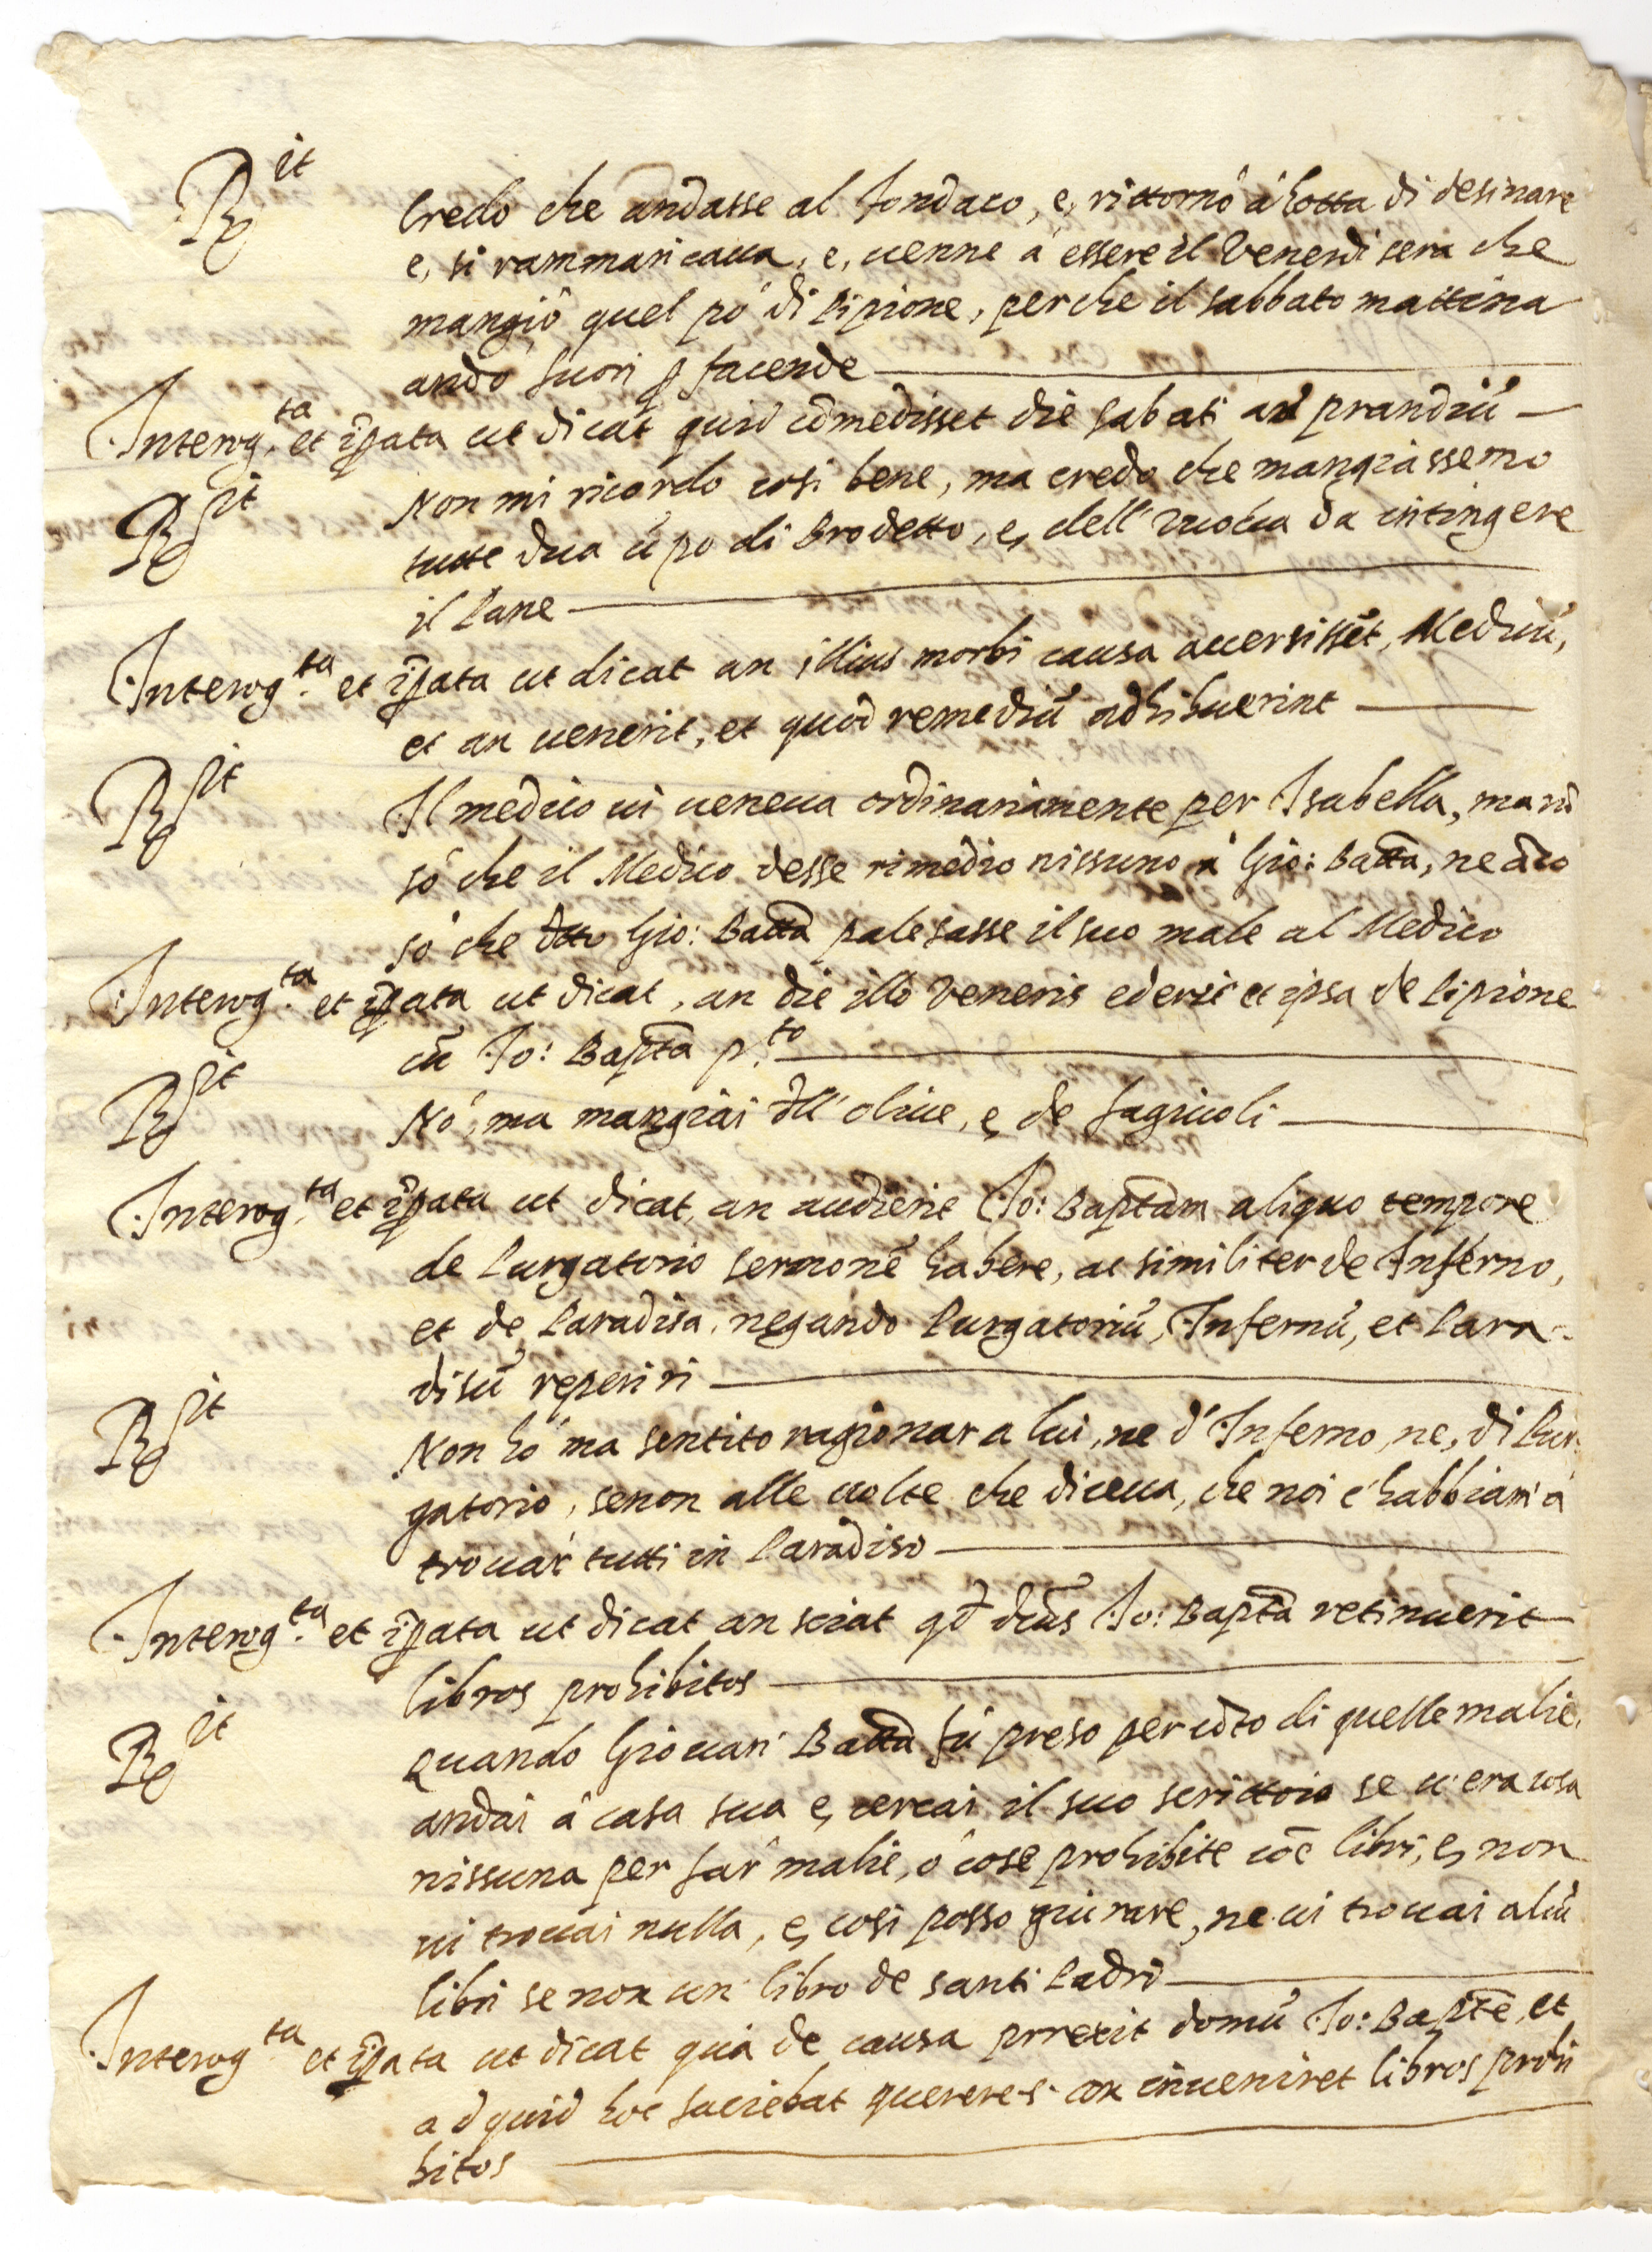 R.it Credo che andasse al fondaco, e, rittornò à hotta di desinare
e, si rammaricaua, e, uenne à essere il Venerdi sera che
mangiò quel pò di Pipione, perche il sabbato mattina
andò fuori p facende
Interog.ta et ip̃ata ut dicat quid cõmedisset die sabati ad prandiũ
R.it Non mi ricordo cosi bene, ma credo che mangiassemo
tutte dua ũ po di Brodetto, e, dell' da intingere
il Pane
Interog.ta et ip̃ata ut dicat an illius morbi causa accersissẽt, Medicũ,
et an uenerit, et quod remediũ adhibuerint
R.it Il medico ui ueneua ordinariamente per Isabella, ma nõ
sò che il Medico desse rimedio nissuno à Gio: Batta, ne ãco
sò che dtto Gio: Batta palesasse il suo male al Medico
Interog.ta et ip̃ata ut dicat, an die illo Veneris ederit et ipsa de Pipione
cũ Jo: Bapta p.to
R.it Nò, ma mangiai dll' oliue, e, de fagiuoli
Interog.ta et ip̃ata ut dicat, an audierit Jo: Baptam aliquo tempore
de Purgatorio sermonẽ habere, ac similiter de Inferno,
et de Paradisa, negando Purgatoriũ, Infernũ, et Para-
disũ reperiri
R.it Non hò ma sentito ragionar a lui, ne d' Inferno, ne, di Pur-
gatorio, senon alle uolte che diceua, che noi c' habbiam' à
trouar tutti in Paradiso
Interog.ta et ip̃ata ut dicat an sciat qd dc̃us Jo: Bapta retinuerit
libros prohibitos
R.it Quando Giouan' Batta fù preso per cõto di quelle malie,
andai à casa sua e, cercai il suo scrittoio se u' era cosa
nissuna per far malie, ò cose prohibite cõe libri, e, non
ui trouai nulla, e, cosi posso giurare, ne ui trouai alcũ
libri se non un' libro de santi Padri
Interog.ta et ip̃ata ut dicat qua de causa prrexit domũ Jo: Baptẽ, et
ad quid hoc faciebat querere s. an inueniret libros prohi
bitos